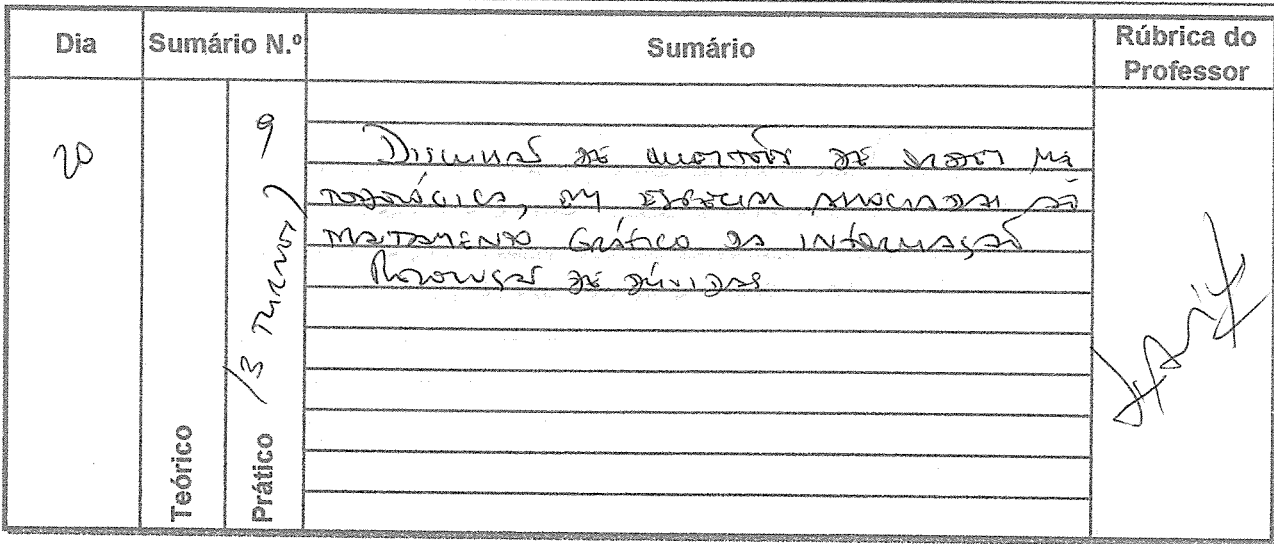 Dia
Sumário N.º
Sumário
Rúbrica do
Professor
20
Teórico
Prático (3 Turnos) 9
Discussão de questões de ordem me
todológica, em especial associadas ao
tratamento Gráfico da informação
Resolução de dúvidas